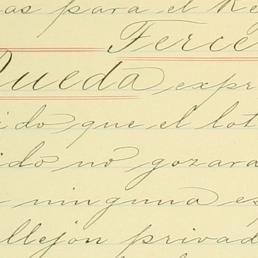 para el Re
Terce
Queda expr
ido que el lot
ido no gozará
ninguna es
llejón privad